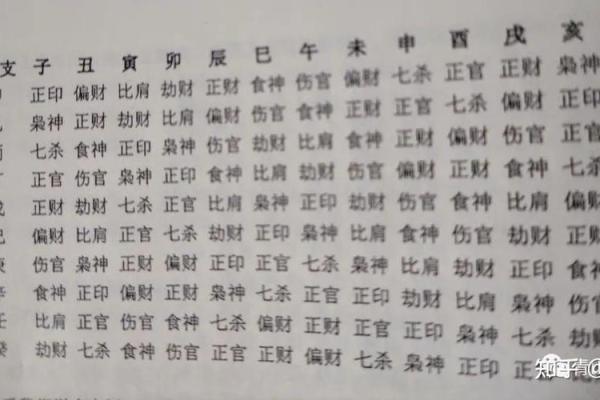 支 子 丑 寅 卯 辰 巳 午 未 申 酉 戌 亥
正印 偏财 比肩 劫财 正财 食神 伤官 偏财 七杀 正官 正财 枭神
枭神 正财 劫财 比肩 偏财 伤官 食神 正财 正官 七杀 偏财 正印
七杀 食神 正印 枭神 伤官 劫财 比肩 食神 正财 偏财 伤官 正官
丁 正官 伤官 枭神 正印 食神 比肩 劫财 伤官 偏财 正财 食神 七杀
戊 正财 劫财 七杀 正官 比肩 枭神 正印 劫财 伤官 食神 比肩 偏财
己 偏财 比肩 正官 七杀 劫财 正印 枭神 比肩 食神 伤官 劫财 正财
庚 伤官 枭神 正财 偏财 正印 正官 七杀 枭神 比肩 劫财 正印 食神
辛 食神 正印 偏财 正财 枭神 七杀 正官 正印 劫财 比肩 枭神 伤官
壬 比肩 正官 伤官 食神 七杀 偏财 正财 正官 正印 枭神 七杀 劫财
癸 劫财 七杀 食神 伤官 正官 正财 偏财 七杀 枭神 正印 正
知乎